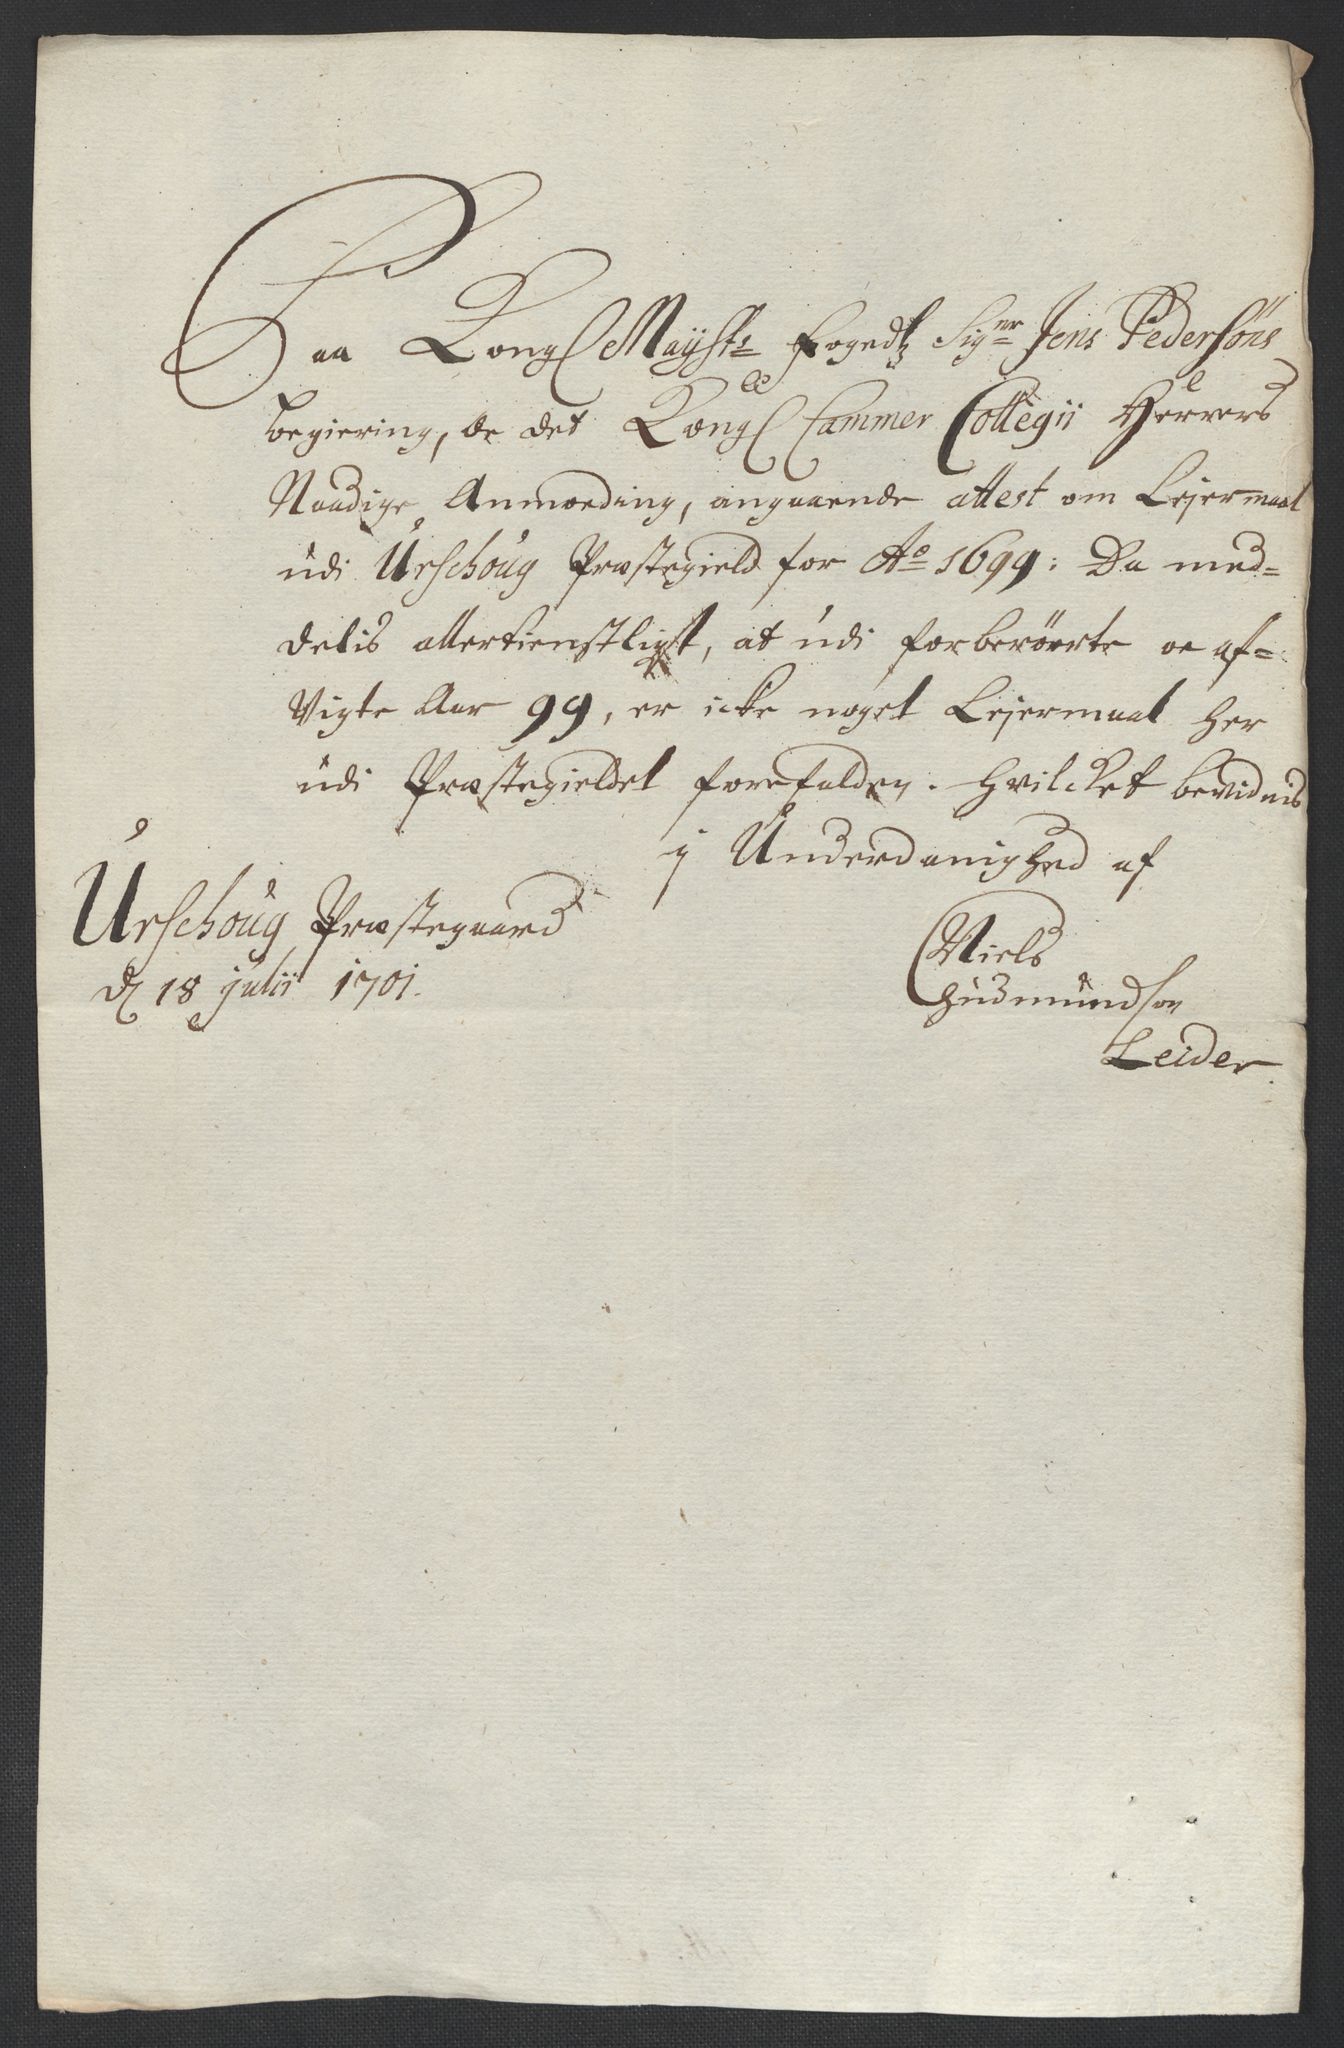 Paa Kongl Mayst:s Fogedtz Sig:nr Jens Pedersøns
begiering, oc det Kongl Cammer Collegii Herrers
Naadige Anmoeding, angaaende attest om Lejermaal
udi Urschoug Præstegield for A:o 1699: Da med=
delis allertienstligst, at udi forberørte oc af=
Vigte Aar 99, er icke noget Lejermaal her
udi Præstegieldet forefalden. Hvilcket bevidnis
i Underdanighed af
Urschoug Præstegaard
d 18 julii 1701.
Niels
Gudmundson
Leider